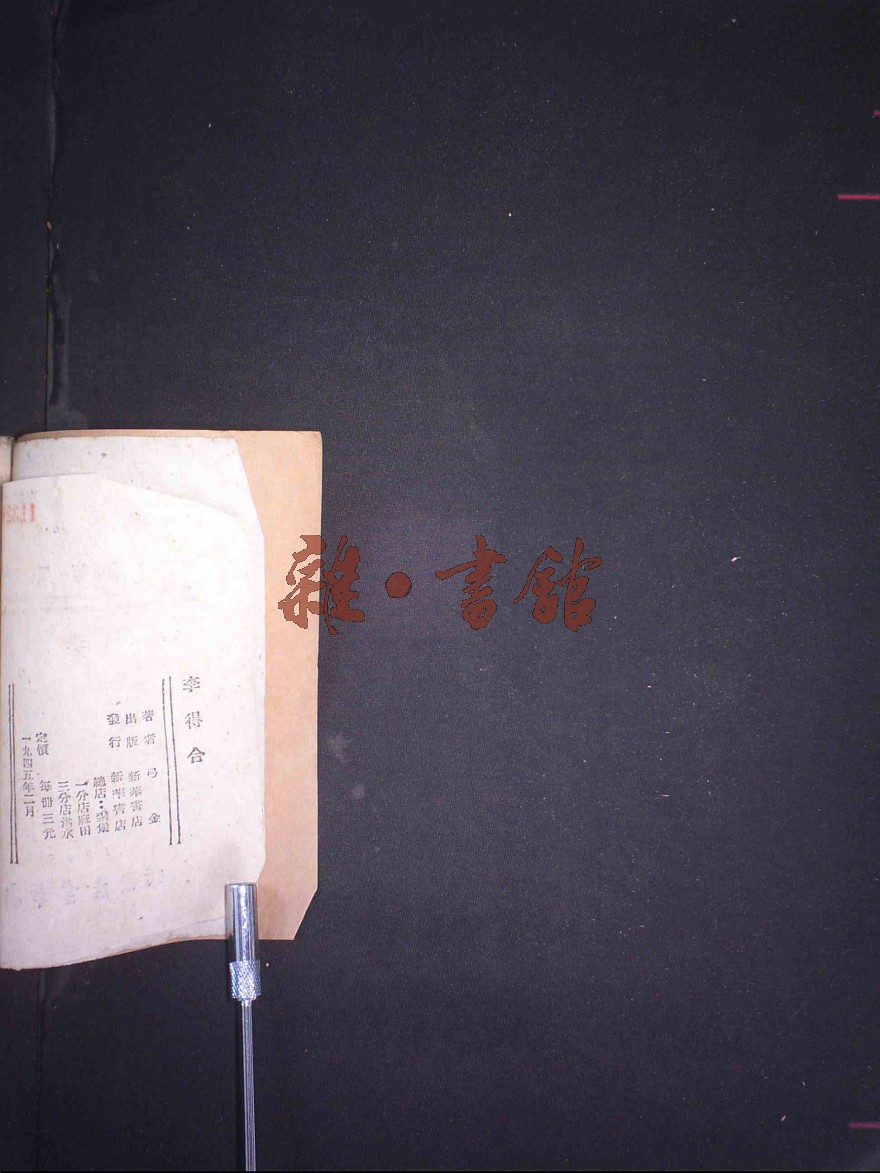 李得合
著者 弓金
出版 新華書店
發行 新華書店
總店：
一分店麻田
三分店
定價 每冊三元
一九四五年二月
雜•書館